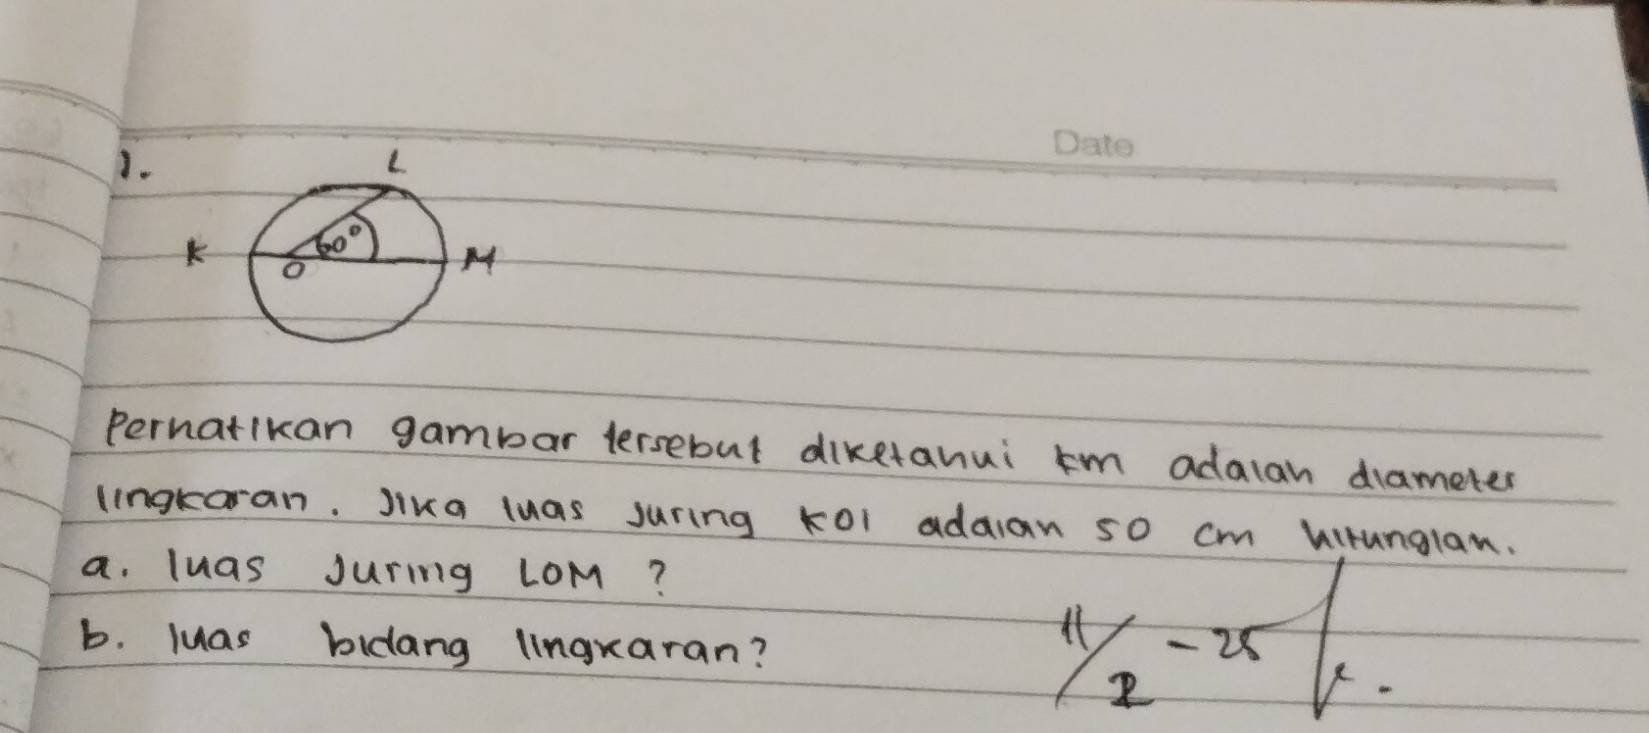 Date
1.
L
K
60°
O
M
Perhatikan gambar tersebut diketahui km adalah diameter
lingkaran. Jika luas Juring KOl adalah 50 cm hitunglah.
a. luas Juring LOM ?
b. luas bidang lingkaran?
11/2 - 25